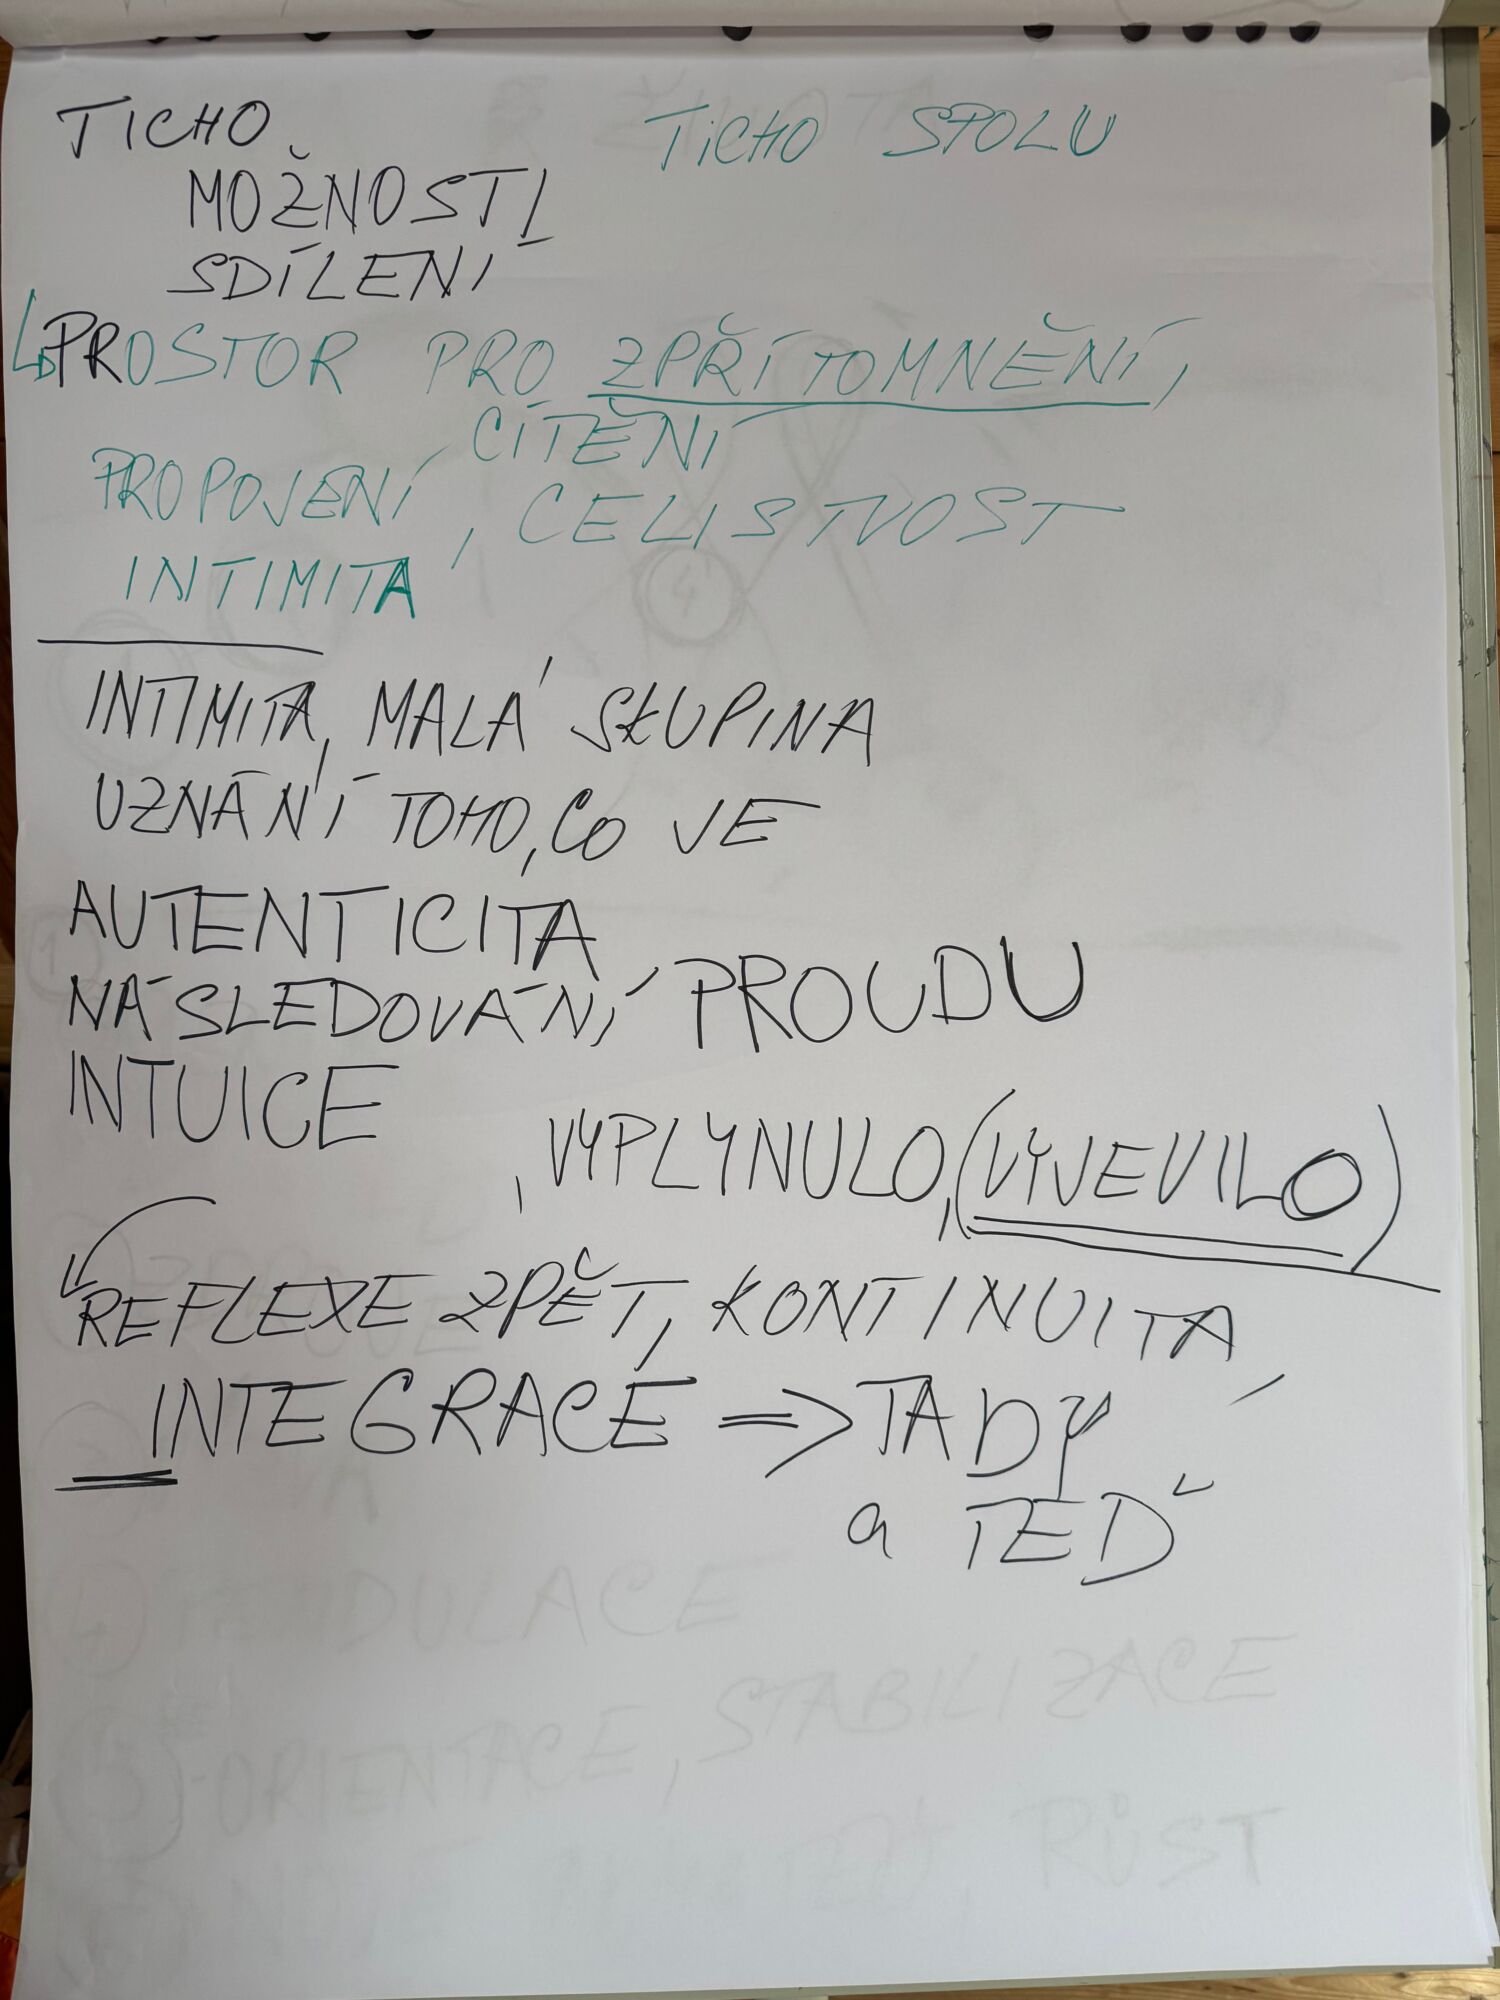 TICHO
TICHO SPOLU
MOŽNOSTI
SDÍLENÍ
PROSTOR PRO ZPŘÍTOMNĚNÍ,
CÍTĚNÍ
PROPOJENÍ, CELISTVOST
INTIMITA
INTIMITA, MALÁ SKUPINA
UZNÁNÍ TOHO, CO JE
AUTENTICITA
NÁSLEDOVÁNÍ PROUDU
INTUICE
, VYPLYNULO, (VYJEVILO)
REFLEXE ZPĚT, KONTINUITA,
INTEGRACE => TADY
a TEĎ
DULACE
ORIENTACE, STABILIZACE
RŮST